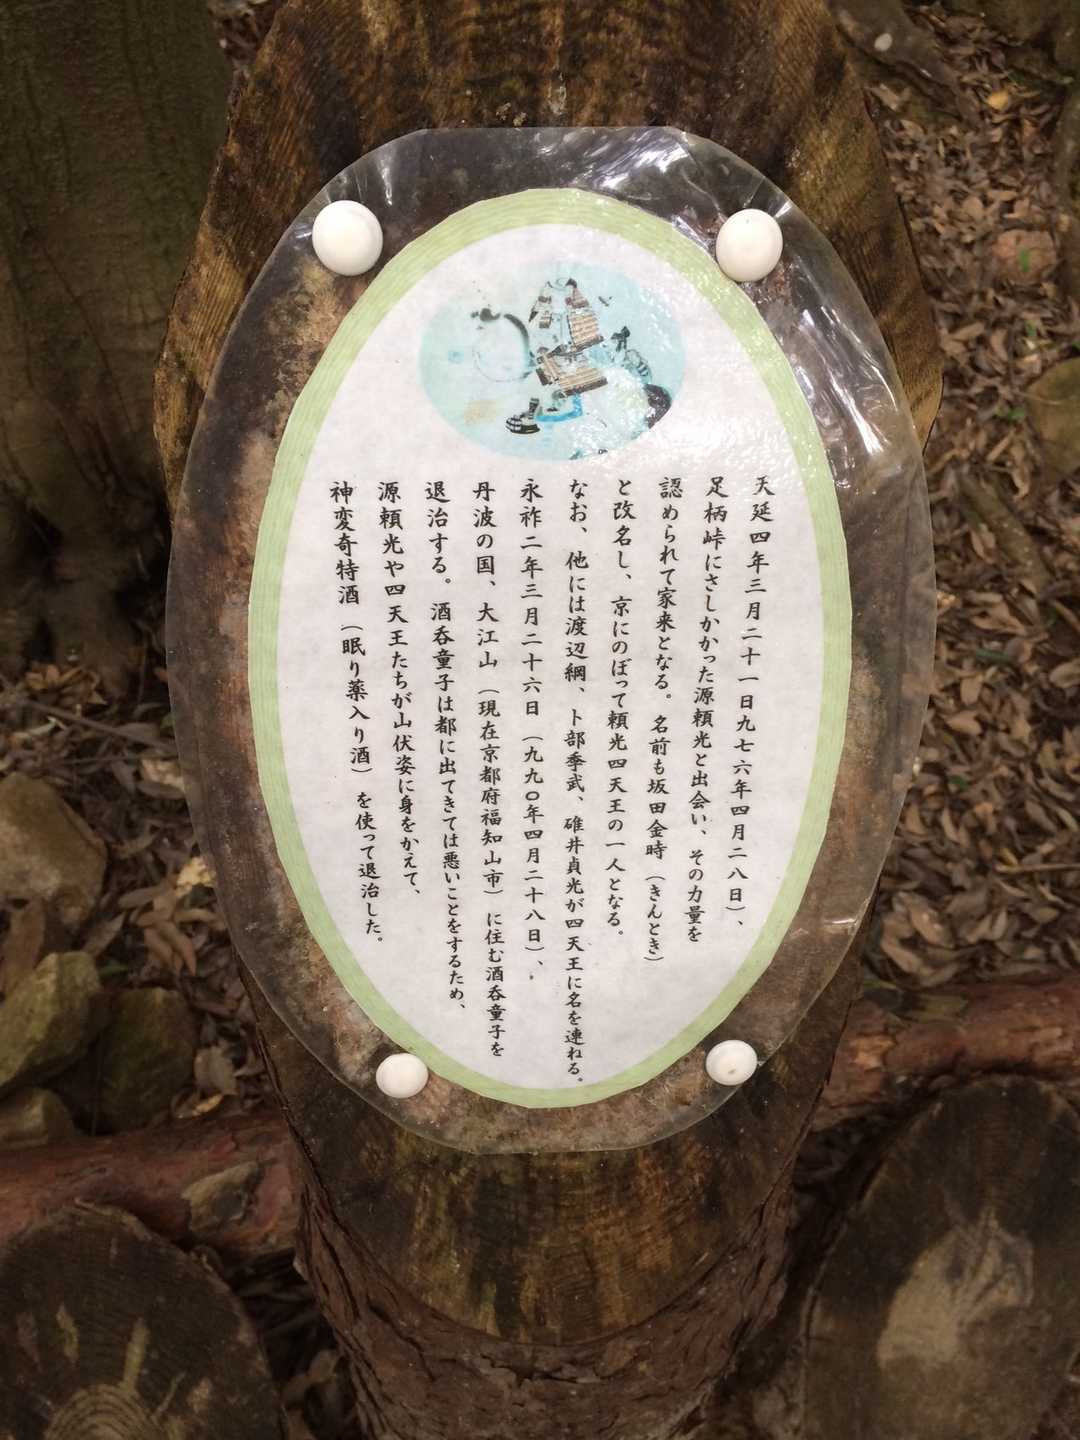 天延四年三月二十一日九七六年四月二八日）、
足柄峠にさしかかった源頼光と出会い、その力量を
認められて家来となる。名前も坂田金時（きんとき）
と改名し、京にのぼって頼光四天王の一人となる。
なお、他には渡辺綱、卜部季武、碓井貞光が四天王に名を連ねる。
永祚二年三月二十六日（九九〇年四月二十八日）、
丹波の国、大江山（現在京都府福知山市）に住む酒呑童子を
退治する。酒呑童子は都に出てきては悪いことをするため、
源頼光や四天王たちが山伏姿に身をかえて、
神変奇特酒（眠り薬入り酒）を使って退治した。